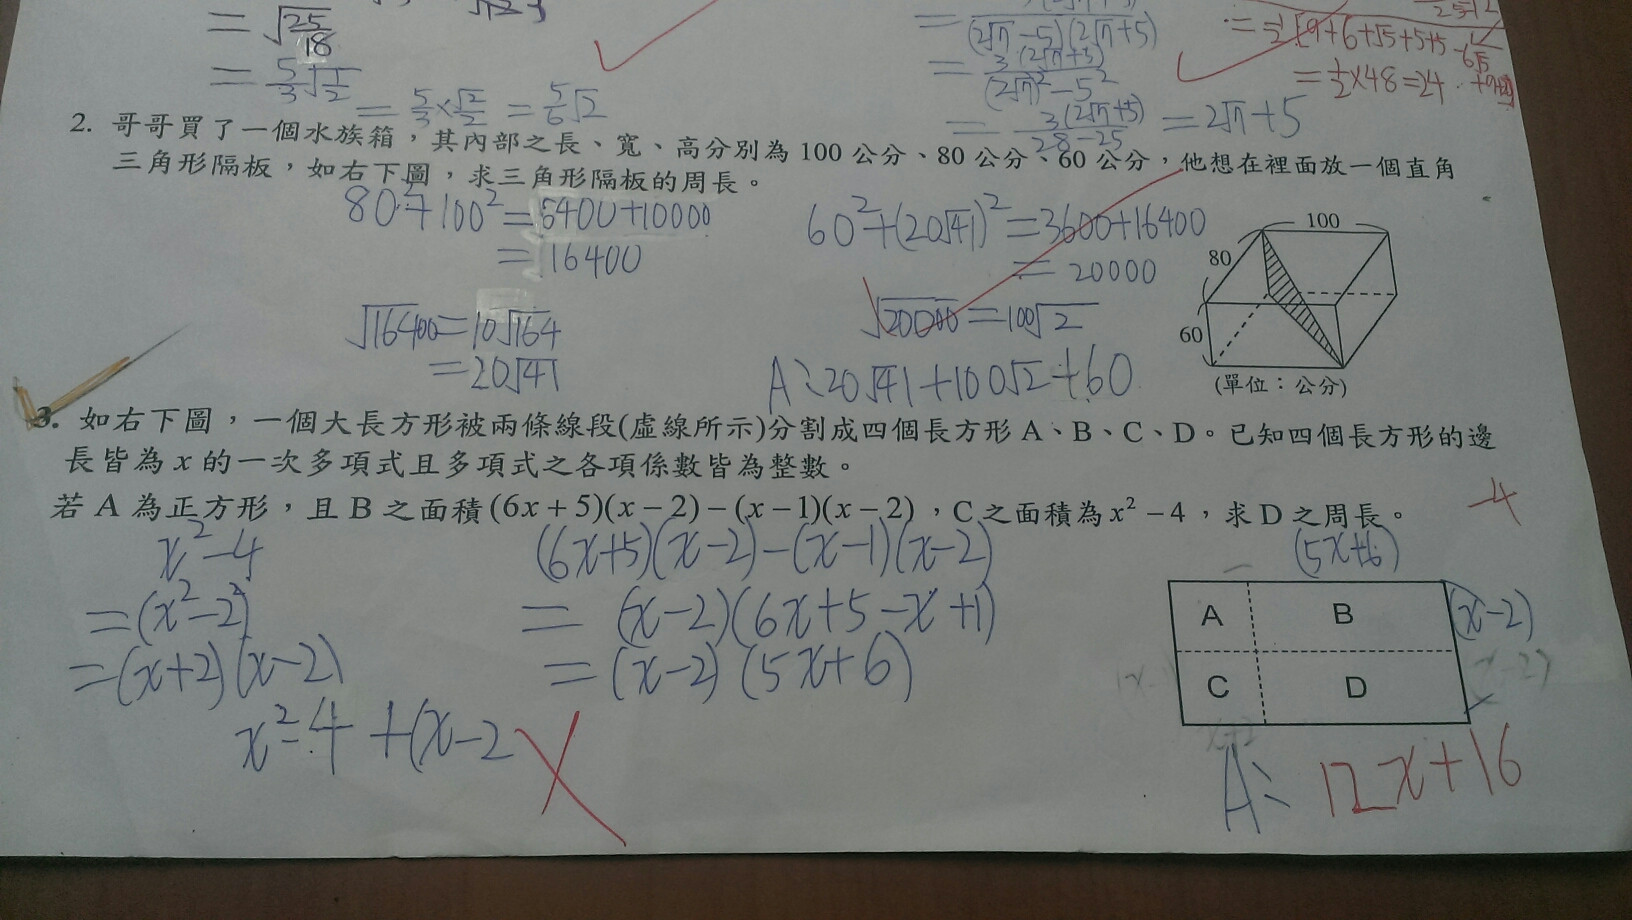 = √25/18
= 5/3 √1/2
= 5/3 × √2/2 = 5/6 √2
(2√7 - 5)(2√7 + 5)
= 3(2√7 + 5) / (2√7)² - 5²
= 3(2√7 + 5) / 28 - 25 = 2√7 + 5
= 1/2 × 48 = 24
2. 哥哥買了一個水族箱，其內部之長、寬、高分別為 100 公分、80 公分、60 公分，他想在裡面放一個直角
三角形隔板，如右下圖，求三角形隔板的周長。
80² + 100² = 6400 + 10000
= 16400
√16400 = 10√164
= 20√41
60² + (20√41)² = 3600 + 16400
= 20000
√20000 = 100√2
A：20√41 + 100√2 + 60
100
80
60
(單位：公分)
3. 如右下圖，一個大長方形被兩條線段(虛線所示)分割成四個長方形 A、B、C、D。已知四個長方形的邊
長皆為 x 的一次多項式且多項式之各項係數皆為整數。
若 A 為正方形，且 B 之面積 (6x + 5)(x − 2) − (x − 1)(x − 2)，C 之面積為 x² − 4，求 D 之周長。
-4
x² - 4
= (x² - 2²)
= (x + 2)(x - 2)
x² - 4 + (x - 2
(6x + 5)(x - 2) - (x - 1)(x - 2)
= (x - 2)(6x + 5 - x + 1)
= (x - 2)(5x + 6)
(5x + 6)
A B (x - 2)
C D
A： 12x + 16